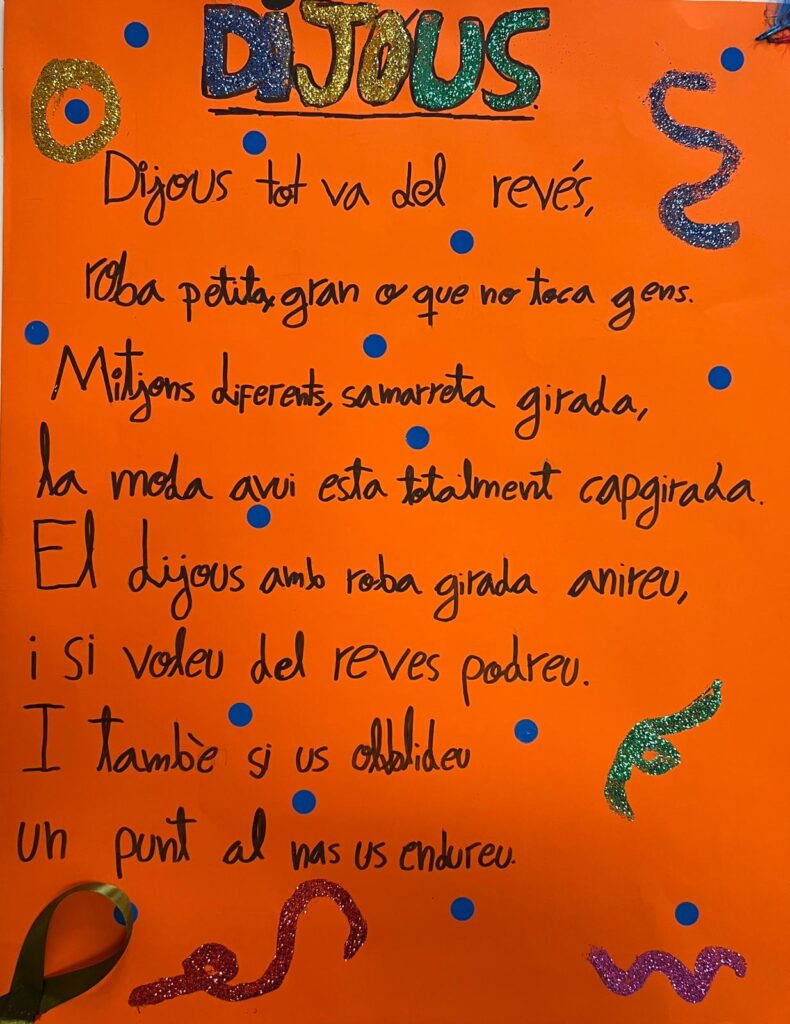 DiJOUS.
Dijous tot va del revés,
roba petita, gran o que no toca gens.
Mitjons diferents, samarreta girada,
la moda avui esta totalment capgirada.
El dijous amb roba girada anireu,
i si voleu del reves podreu.
I tambè si us oblideu
un punt al nas us endureu.